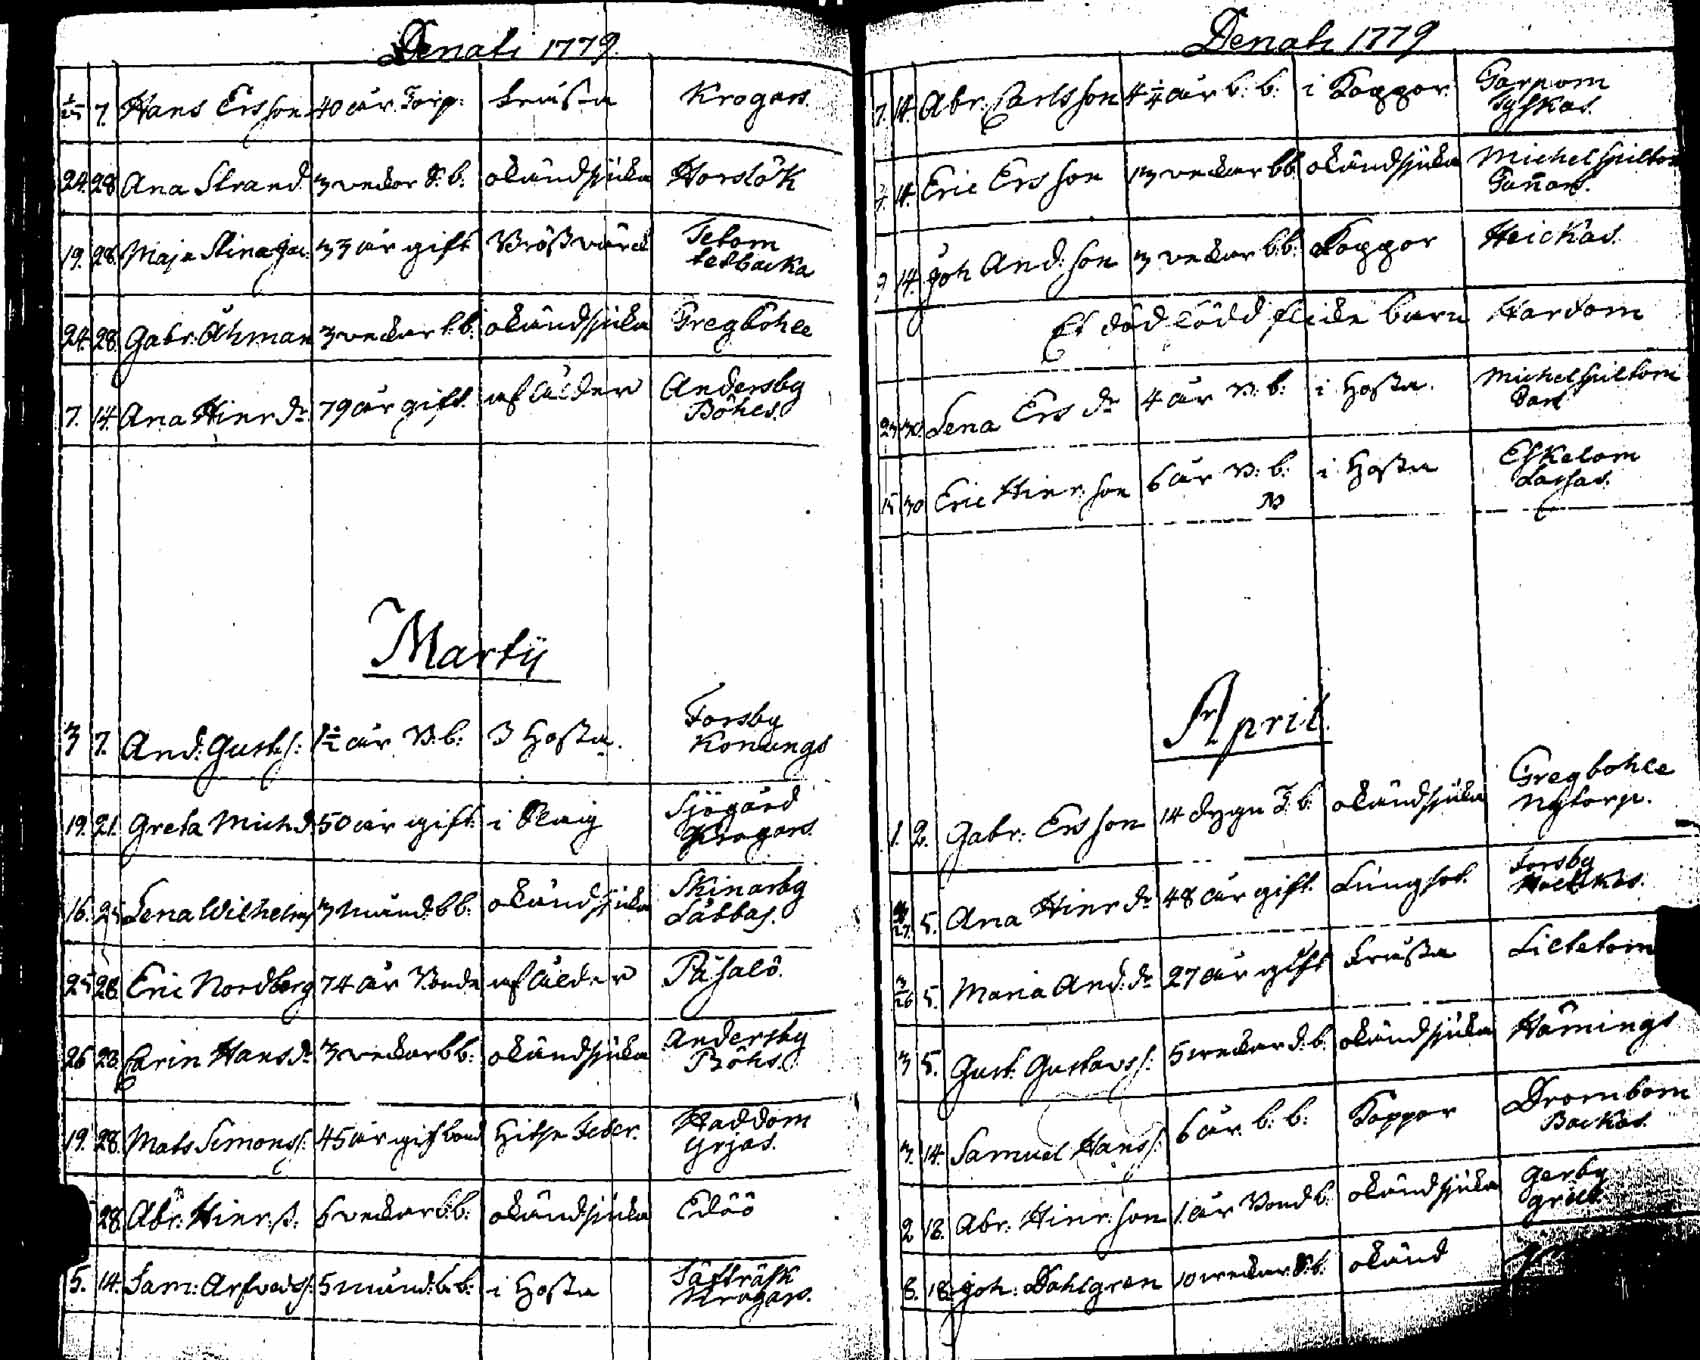 Denati 1779.
1/25 7. Hans Ersson 40 år Torp: brusta Krogars.
24. 28 Ana Strand. 3 veckor S. b. okänd sjuka Horslök
19. 28. Maja Stina Jac. 33 år gift Bröstvärck Tetom
tetbacka
24. 28. Gabr. Öhman 3 veckor b.b. okänd sjuka Gregböhle
7. 14. Ana Hinr dr 79 år gift. af ålder Andersby
Böhls.
Martij
3 7. And: Gust s: 1½ år B. b: I hosta. Forsby
Konungs
19. 21. Greta Mich d. 50 år gift. i Slag Sjögård
Krogars
16. 25 Lena Wilhelms 3 månd. b b. okänd sjuka Skinarby
Labbas.
25 28. Eric Nordberg 74 år Bonde af ålder Påsalö.
26 28. Carin Hans dr 3 veckor b b. okänd sjuka Andersby
Böhls.
19. 28. Mats Simons s: 45 år gift bond hitsn feber. Haddom
Grjas.
28. Abr. Hinr. s. 6 veckor b.b. okänd sjuka Edöö
5. 14. Sam: Arfveds s: 5 månd. b.b. i hosta Säfträsk
Krogars.
Denati 1779
7. 14. Abr. Carlsson 4¼ år b. b. i Koppor Garpom
Tyskas.
7. 14. Eric Ersson 13 veckor b b. okänd sjuka Michelspiltom
Gunars.
9 14. Joh And. son 3 veckor b.b. Koppor Heickas.
Et död född flicke barn Hardom
23 30. Lena Ers dr 4 år B. b. i hosta. Michelspiltom
15 30 Eric Hinr. son 6 år B. b. i hosta Eskelom
Lassas.
April.
1. 2. Gabr: Ersson 14 dygn T. b. okänd sjuka Gregbohle
Nytorp.
27. 5. Ana Hinr dr 48 år gift. Lungsot. Forsby
3/26 5. Maria And. dr 27 år gift brusta Liltetom
3 5. Gust. Gustavs s: 5 veckor d. b. okänd sjuka Hämings
7. 14. Samuel Hans s: 6 år. b. b. Koppor Drombom
Backas.
2 18. Abr. Hinr. son 1. år Bond b. okänd sjuka Gerby
8. 18. Joh: Dahlgren 10 veckor S. b. okänd